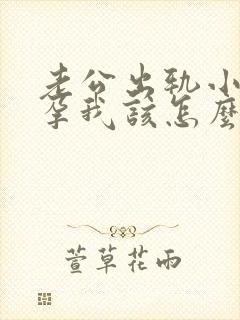 老公出軌小
孕我該怎麼
萱草花雨